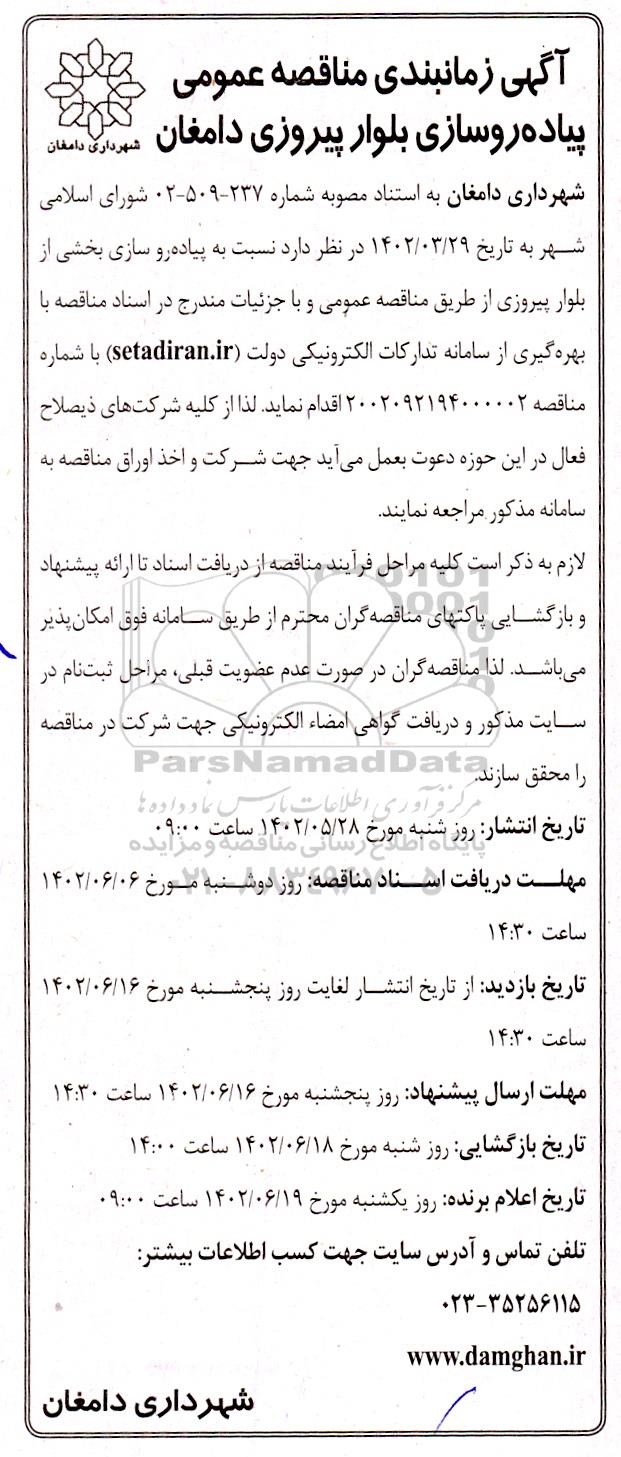 آگهی زمانبندی مناقصه عمومی
پیاده‌روسازی بلوار پیروزی دامغان
شهرداری دامغان
شهرداری دامغان به استناد مصوبه شماره ۲۳۷-۵۰۹-۰۲ شورای اسلامی
شهر به تاریخ ۱۴۰۲/۰۳/۲۹ در نظر دارد نسبت به پیاده‌رو سازی بخشی از
بلوار پیروزی از طریق مناقصه عمومی و با جزئیات مندرج در اسناد مناقصه با
بهره‌گیری از سامانه تدارکات الکترونیکی دولت (setadiran.ir) با شماره
مناقصه ۲۰۰۲۰۹۲۱۹۴۰۰۰۰۰۲ اقدام نماید. لذا از کلیه شرکت‌های ذیصلاح
فعال در این حوزه دعوت بعمل می‌آید جهت شرکت و اخذ اوراق مناقصه به
سامانه مذکور مراجعه نمایند.
لازم به ذکر است کلیه مراحل فرآیند مناقصه از دریافت اسناد تا ارائه پیشنهاد
و بازگشایی پاکتهای مناقصه‌گران محترم از طریق سامانه فوق امکان‌پذیر
می‌باشد. لذا مناقصه‌گران در صورت عدم عضویت قبلی، مراحل ثبت‌نام در
سایت مذکور و دریافت گواهی امضاء الکترونیکی جهت شرکت در مناقصه
را محقق سازند.
ParsNamadData
مرکز فرآوری اطلاعات پارس نماد داده ها
تاریخ انتشار: روز شنبه مورخ ۱۴۰۲/۰۵/۲۸ ساعت ۰۹:۰۰
پایگاه اطلاع رسانی مناقصه و مزایده
مهلت دریافت اسناد مناقصه: روز دوشنبه مورخ ۱۴۰۲/۰۶/۰۶
ساعت ۱۴:۳۰
تاریخ بازدید: از تاریخ انتشار لغایت روز پنجشنبه مورخ ۱۴۰۲/۰۶/۱۶
ساعت ۱۴:۳۰
مهلت ارسال پیشنهاد: روز پنجشنبه مورخ ۱۴۰۲/۰۶/۱۶ ساعت ۱۴:۳۰
تاریخ بازگشایی: روز شنبه مورخ ۱۴۰۲/۰۶/۱۸ ساعت ۱۴:۰۰
تاریخ اعلام برنده: روز یکشنبه مورخ ۱۴۰۲/۰۶/۱۹ ساعت ۰۹:۰۰
تلفن تماس و آدرس سایت جهت کسب اطلاعات بیشتر:
۰۲۳-۳۵۲۵۶۱۱۵
www.damghan.ir
شهرداری دامغان